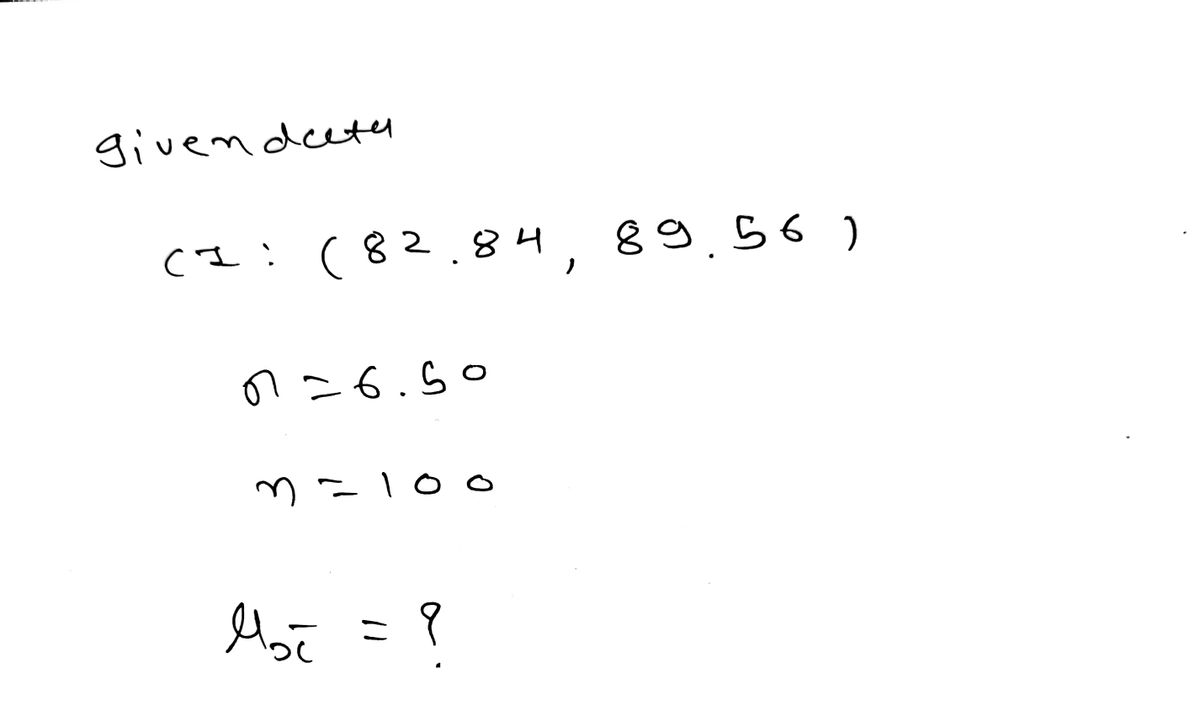 given data
CI: (82.84, 89.56)
σ = 6.50
n = 100
μx̄ = ?